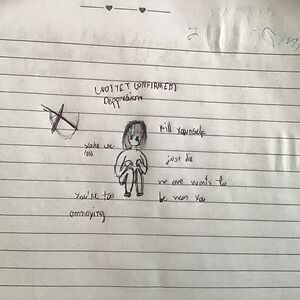 (NOT YET CONFIRMED)
Depression
Kill yourself
just die
you're too
annoying
no one wants to
be near you